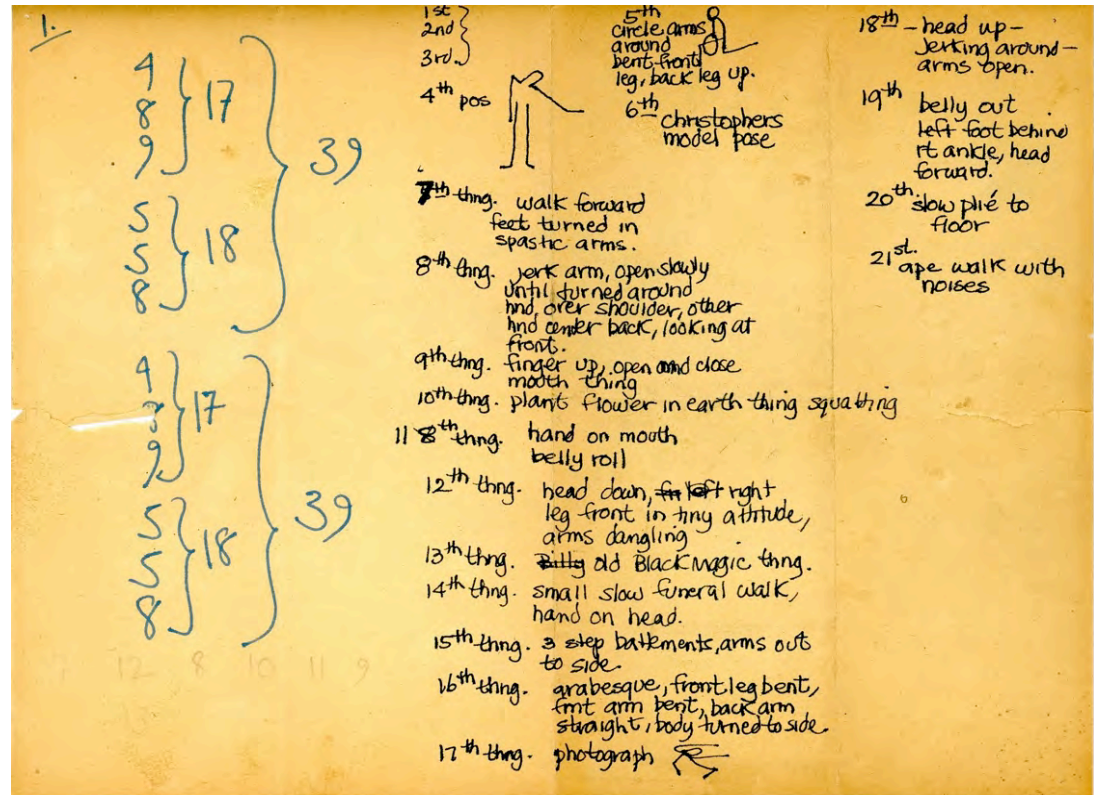 1.
4
8
9
17
5
5
8
18
39
4
8
9
17
5
5
8
18
39
7 12 8 10 11 9
1st
2nd
3rd
4th pos
5th
circle arms
around
bent front
leg, back leg up.
6th christophers
model pose
7th thng. walk forward
feet turned in
spastic arms.
8th thng. jerk arm, open slowly
until turned around
hnd, over shoulder, other
hnd center back, looking at
front.
9th thng. finger up, open and close
mouth thing
10th thng. plant flower in earth thing squatting
11 8th thng. hand on mouth
belly roll
12th thng. head down, left right
leg front in tiny attitude,
arms dangling
13th thng. Billy old Black Magic thng.
14th thng. small slow funeral walk,
hand on head.
15th thng. 3 step battements, arms out
to side.
16th thng. arabesque, front leg bent,
frnt arm bent, back arm
straight, body turned to side.
17th thng. photograph
18th - head up -
Jerking around -
arms open.
19th belly out
left foot behind
rt ankle, head
forward.
20th slow plié to
floor
21st. ape walk with
noises